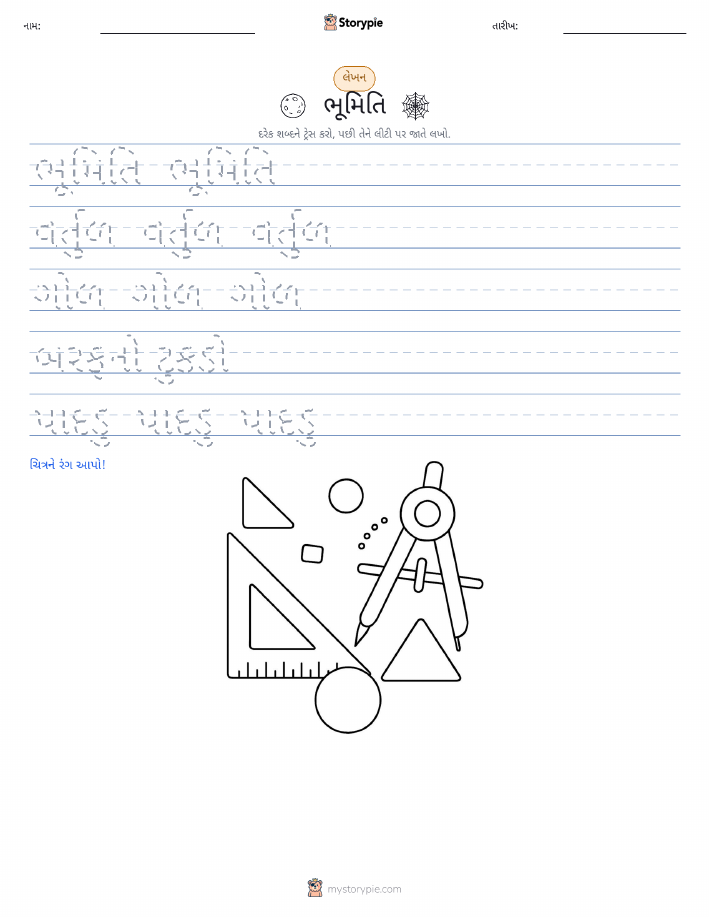 નામ:
Storypie
તારીખ:
લેખન
ભૂમિતિ
દરેક શબ્દને ટ્રેસ કરો, પછી તેને લીટી પર જાતે લખો.
ભૂમિતિ ભૂમિતિ
વર્તુળ વર્તુળ વર્તુળ
ગોળ ગોળ ગોળ
બરફનો ટુકડો
પાદડુ પાદડુ પાદડુ
ચિત્રને રંગ આપો!
mystorypie.com